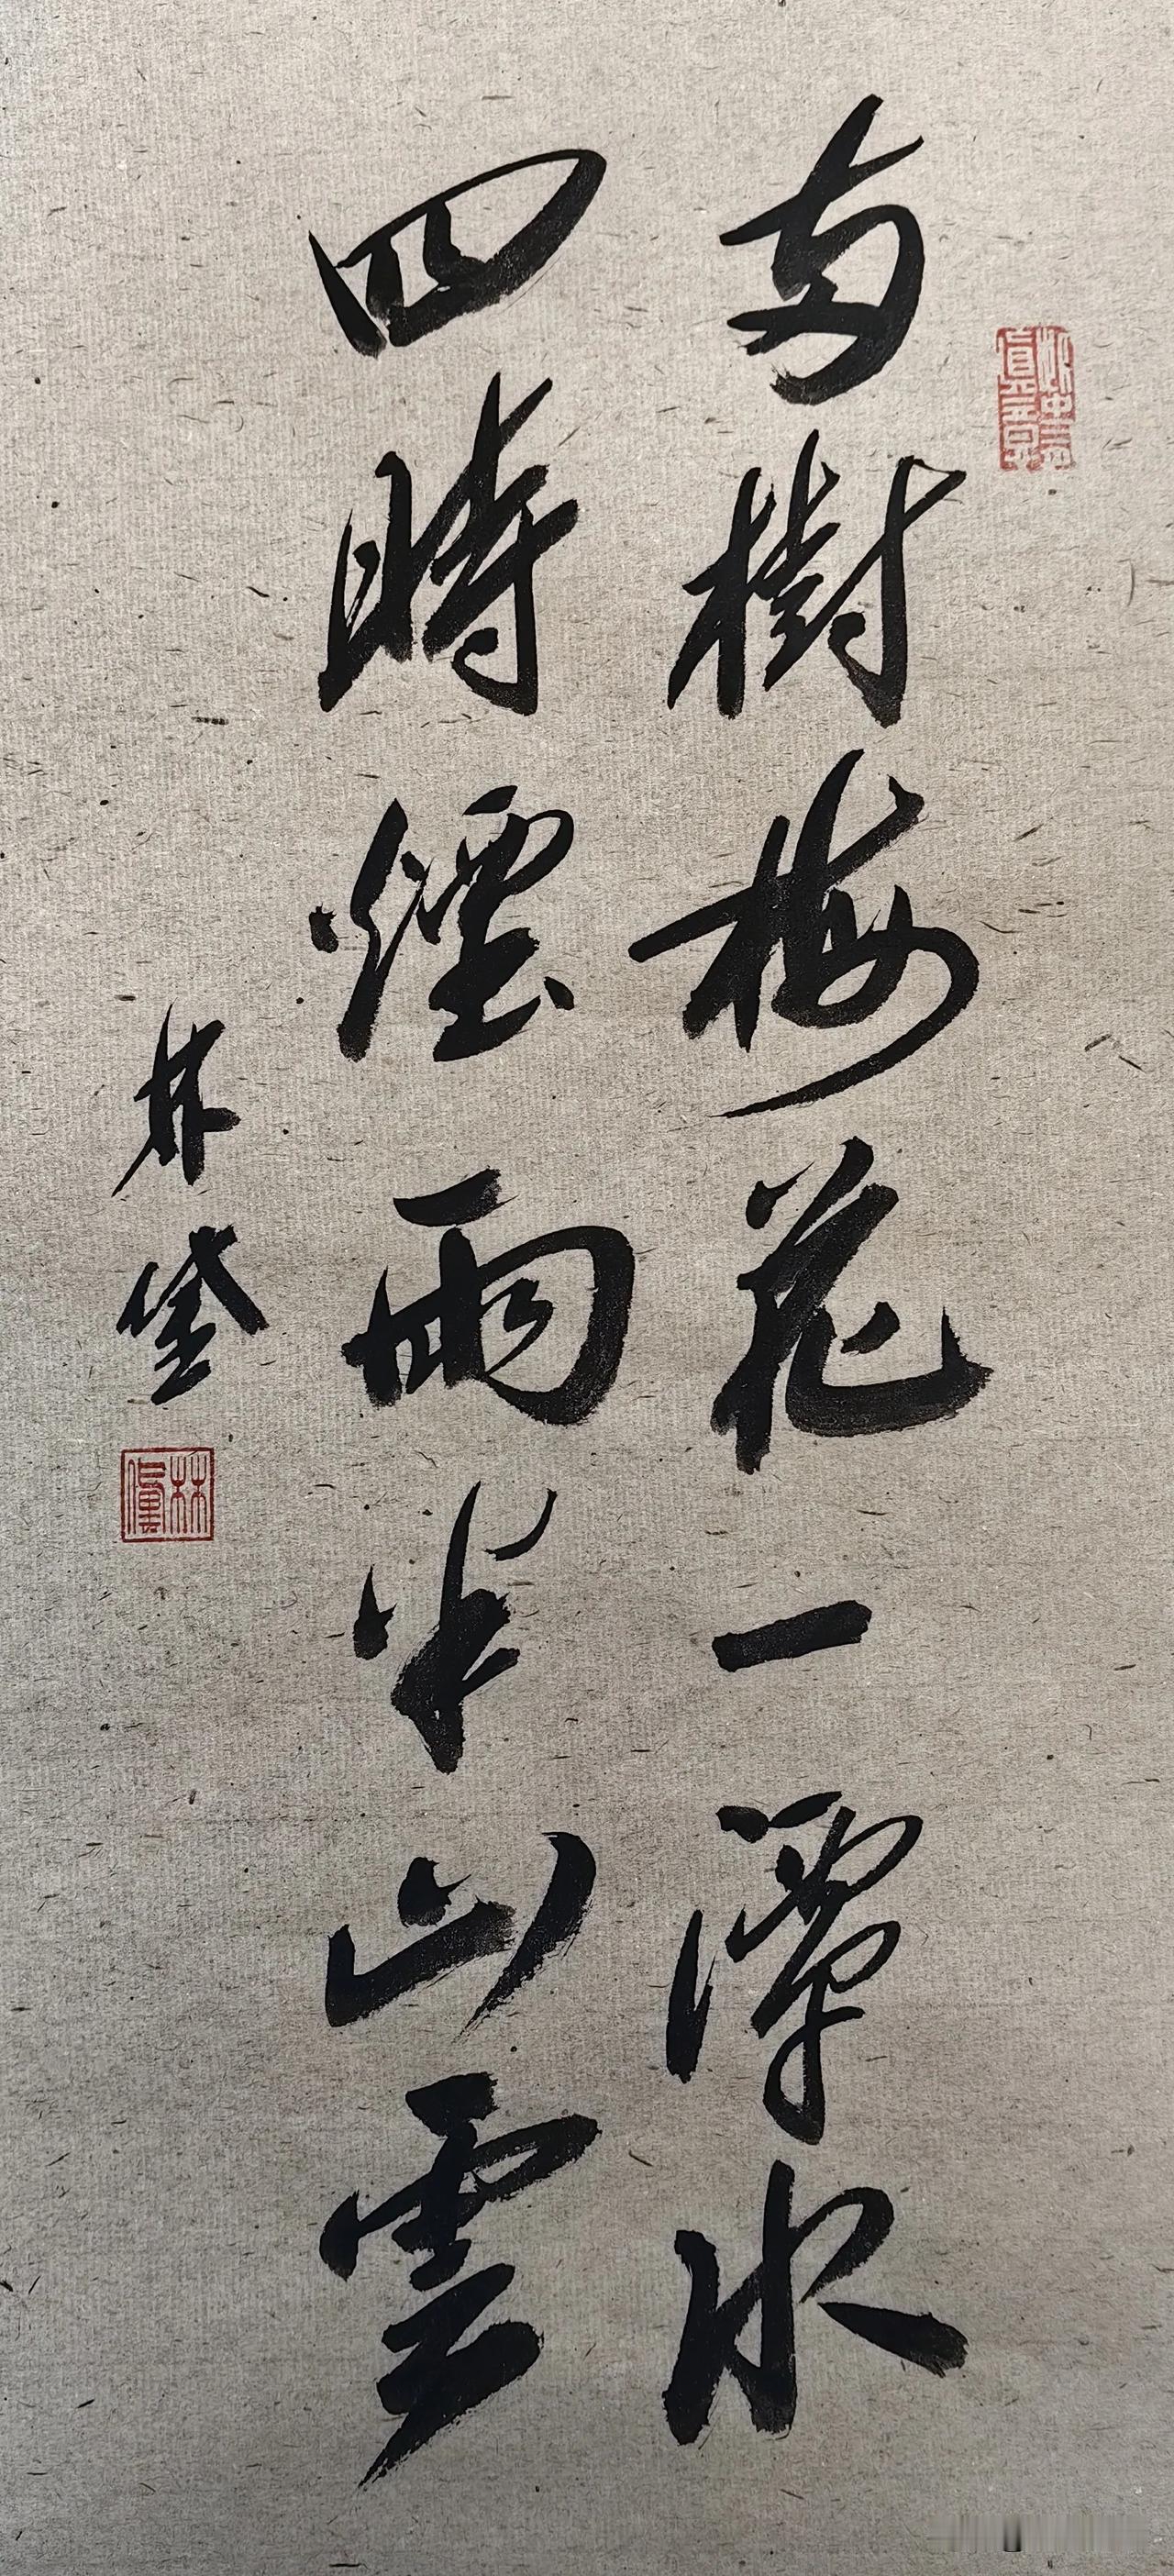 兩樹梅花一潭水
四時煙雨半山雲
林